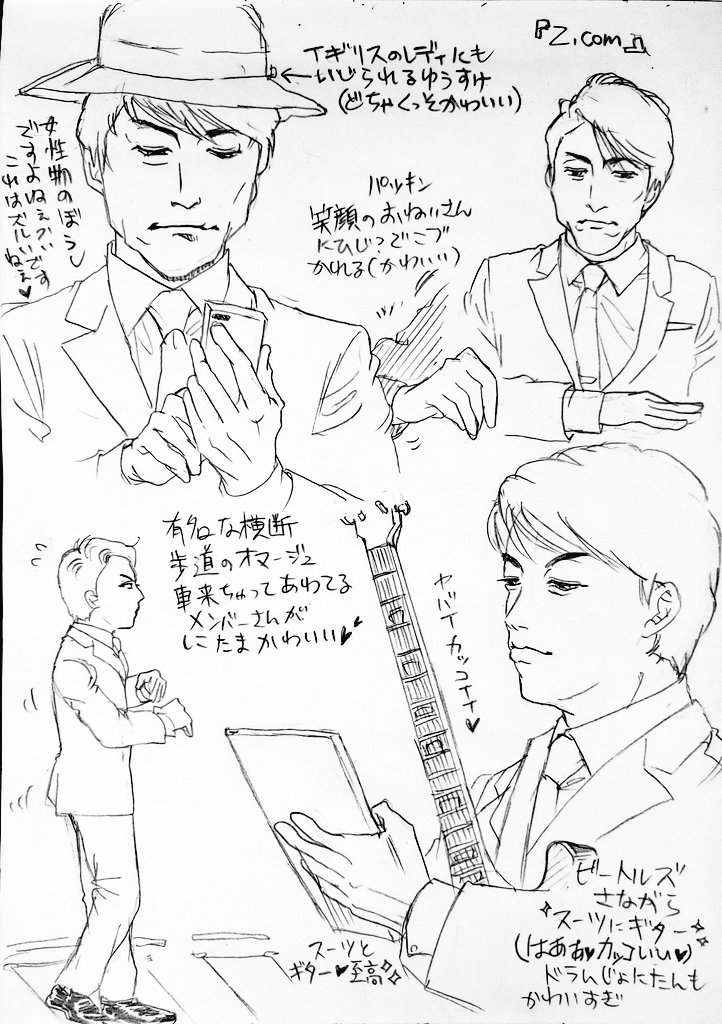 『Z.com』
イギリスのレディにも
いじられるゆうすけ
(どちゃくっそかわいい)
女性物のぼうし
ですよねぇぐい
これはズルいです
ねぇ♥
パツキン
笑顔のおねいさん
にひじでこづ
かれる(かわいい)
有名な横断
歩道のオマージュ
車来ちゃってあわてる
メンバーさんが
しこたまかわいい♥
ヤバイカッコイイ♥
ビートルズ
さながら
スーツにギター
(はああ♥カッコいい♥)
ドラムじょにたんも
かわいすぎ
スーツと
ギター♥至高